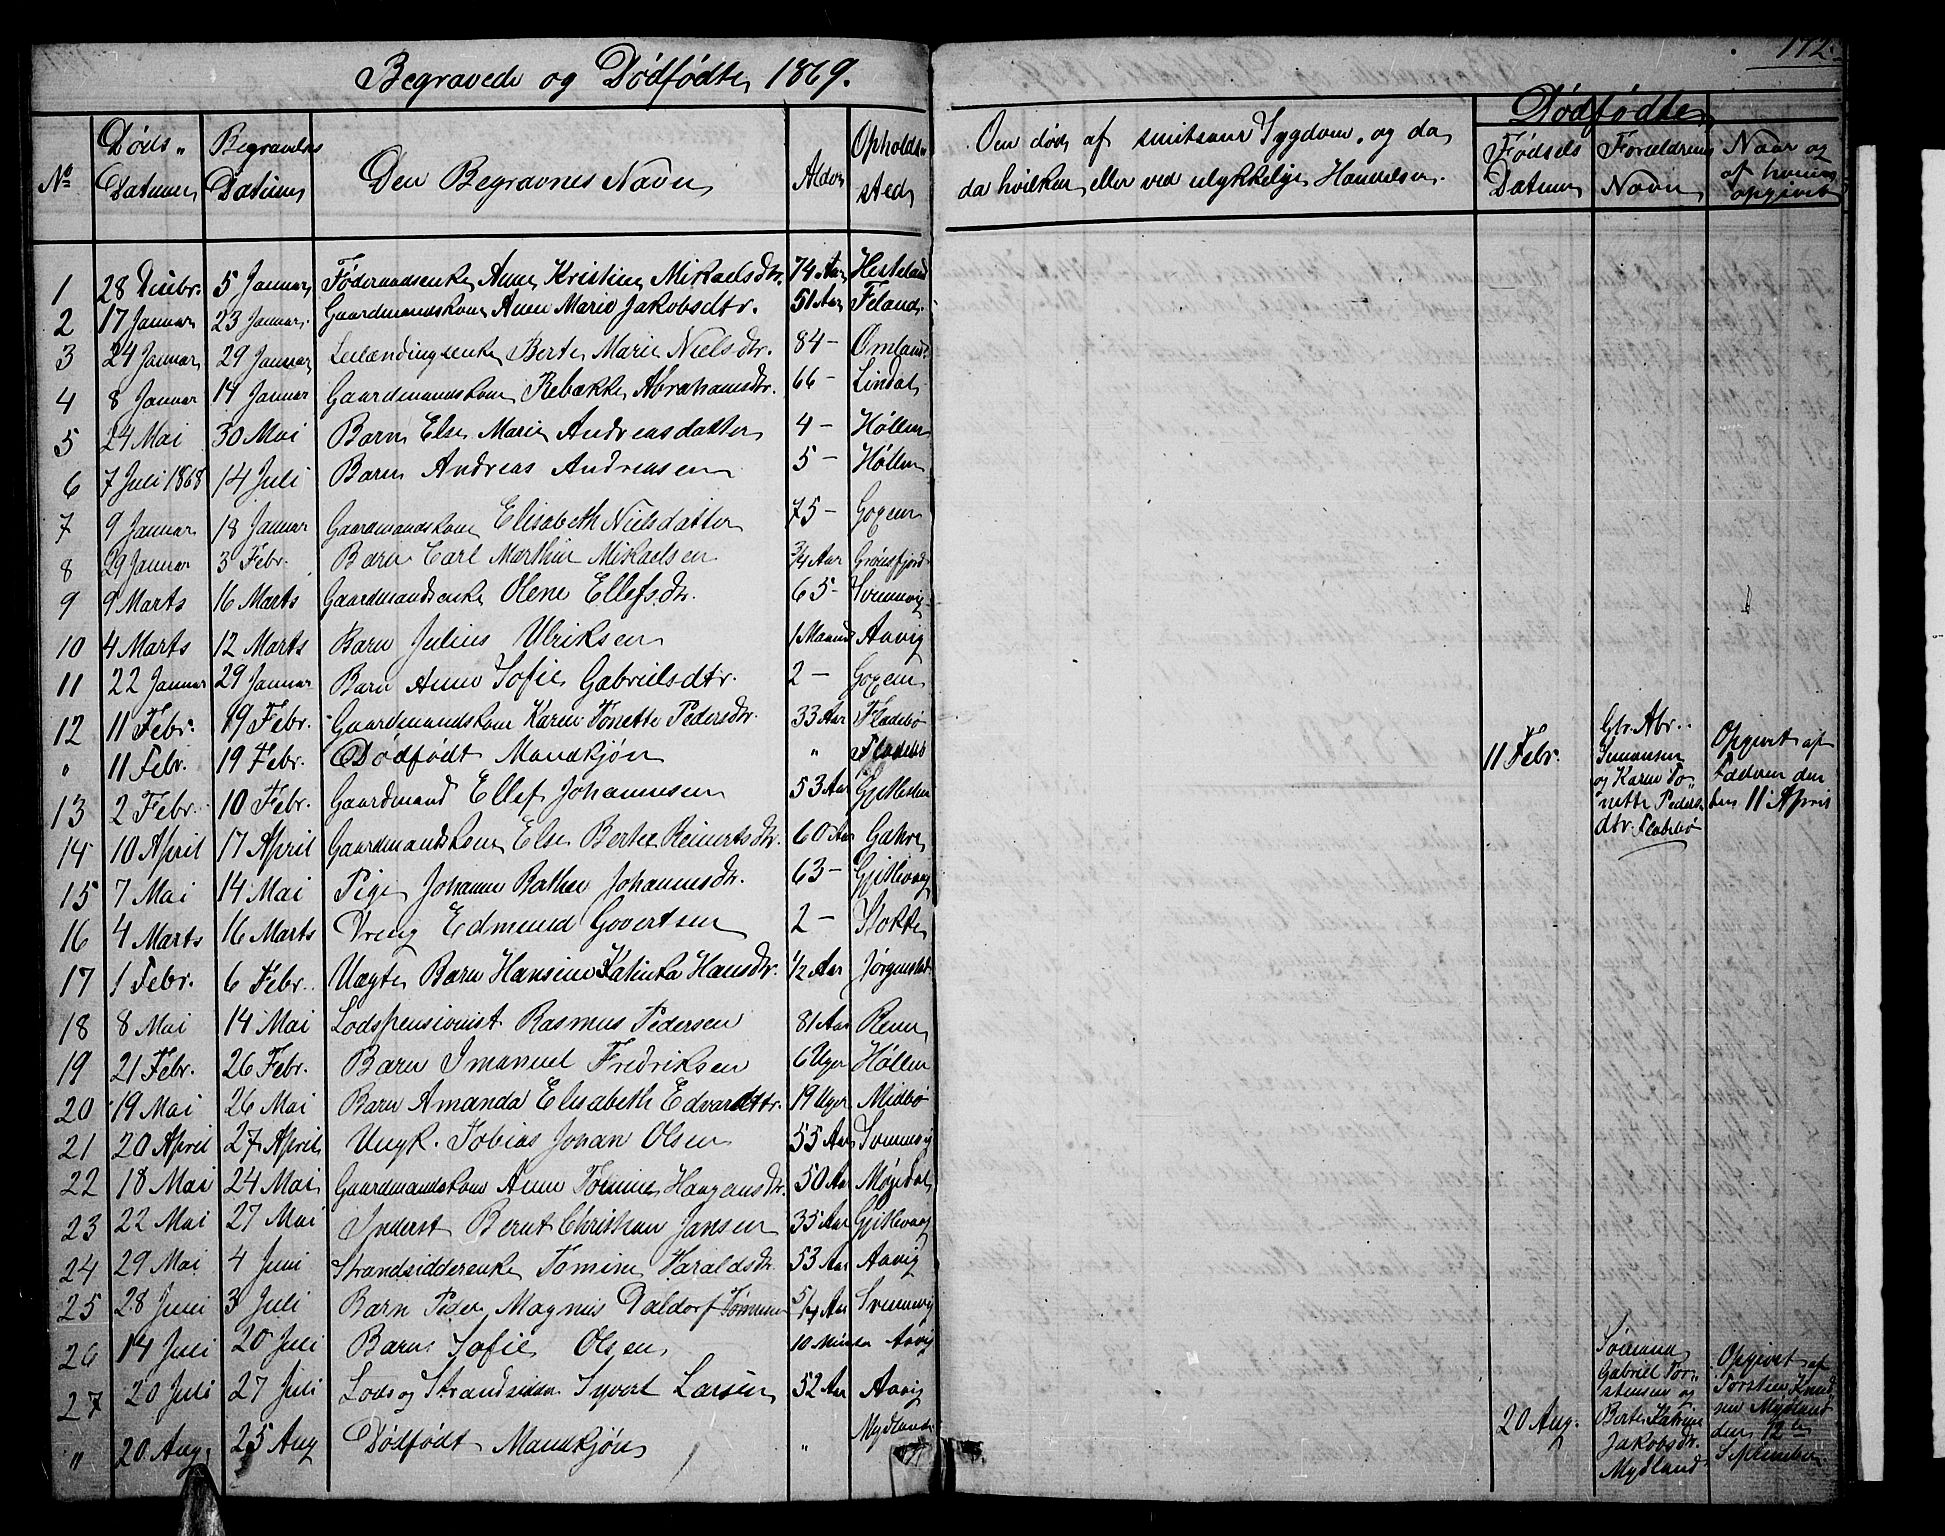 172.
Begravede og Dødfødte 1869.
No
Døds- Datum
Begravelses Datum
Den Begravnes Navn
Alder
Opholds- sted
Om død af smitsom Sygdom, og da
da hvilken, eller ved ulykkelig Hændelse.
Dødfødte
Fødsels Datum
Forældrenes Navn
Naar og af hvem opgivet
1 28 Decbr. 5 Januar Føderaadsenke Anne Kristine Mikaelsdtr. 74 Aar Hesteland
2 17 Januar 23 Januar Gaardmandskone Anne Marie Jakobsdtr. 51 Aar Feland
3 24 Januar 29 Januar Leilændingsenke Berte Marie Nielsdtr. 84 - Omland
4 8 Januar 14 Januar Gaardmandskone Rebække Abrahamsdtr. 66 - Lindal
5 24 Mai 30 Mai Barn Else Marie Andreasdatter 4 - Høllen
6 7 Juli 1868 14 Juli Barn Andreas Andreasen 5 - Høllen
7 9 Januar 18 Januar Gaardmandskone Elisabeth Nielsdatter 75 - Goxem
8 29 Januar 3 Febr. Barn Carl Marthin Mikaelsen 3/4 Aar Grønsfjord
9 9 Marts 16 Marts Gaardmandsenke Olene Ellefsdtr. 65 - Svennevig
10 4 Marts 12 Marts Barn Julius Ulriksen 1 Maaned Aavig
11 22 Januar 29 Januar Barn Anne Sofie Gabrielsdtr. 2 - Goxem
12 11 Febr. 19 Febr. Gaardmandskone Karen Tonette Pedersdtr. 33 Aar Fladebø
" 11 Febr. 19 Febr. Dødfødt Mandkjøn " Fladebø 11 Febr.
Gbr. Abr.
Simonsen
og Karen To-
nette Peders-
dtr. Fladebø
Opgivet af
Faderen den
den 11 April
13 2 Febr. 10 Febr. Gaardmand Ellef Johannesen 53 Aar
14 10 April 17 April Gaardmandskone Else Berte Reinertsdtr. 60 Aar Gahre
15 7 Mai 14 Mai Pige Johanne Johannesdtr. 63 - Gjitlevaag
16 4 Marts 16 Marts Dreng Edmund Govertsen 2 - Stokke
17 1 Febr. 6 Febr. Uægte Barn Hansine Katinka Hansdtr. 1/2 Aar Jørgenstad
18 8 Mai 14 Mai Lodspensionist Rasmus Pedersen 81 Aar
19 21 Febr. 26 Febr. Barn Imanuel Fredriksen 6 Uger Høllen
20 19 Mai 26 Mai Barn Amanda Elisabeth Edvardtr. 19 Uger Midbø
21 20 April 27 April Ungk. Tobias Johan Olsen 55 Aar Svennevig
22 18 Mai 24 Mai Gaardmandskone Anne Tomine Haagensdtr. 50 Aar Møgedal
23 22 Mai 27 Mai Inderst Bernt Christian Jansen 35 Aar Gjitlevaag
24 29 Mai 4 Juni Strandsidderenke Tomine Haraldsdtr. 53 Aar Aavig
25 28 Juni 3 Juli Barn Peder Magnus Daldorf Tønnesen 5/4 Aar Svennevig
26 14 Juli 20 Juli Barn Sofie Olsen 10 Aavig
27 20 Juli 27 Juli Lods og Strandsidder Syvert Larsen 52 Aar Aavig
" 20 Aug 25 Aug Dødfødt Mandkjøn " Mydland 20 Aug.
Sømand
Gabriel Tor-
stensen og
Berte Katrine
Jakobsdtr.
Mydland
Opgivet af
Torsten Knud-
sen Mydland
den 12te
September